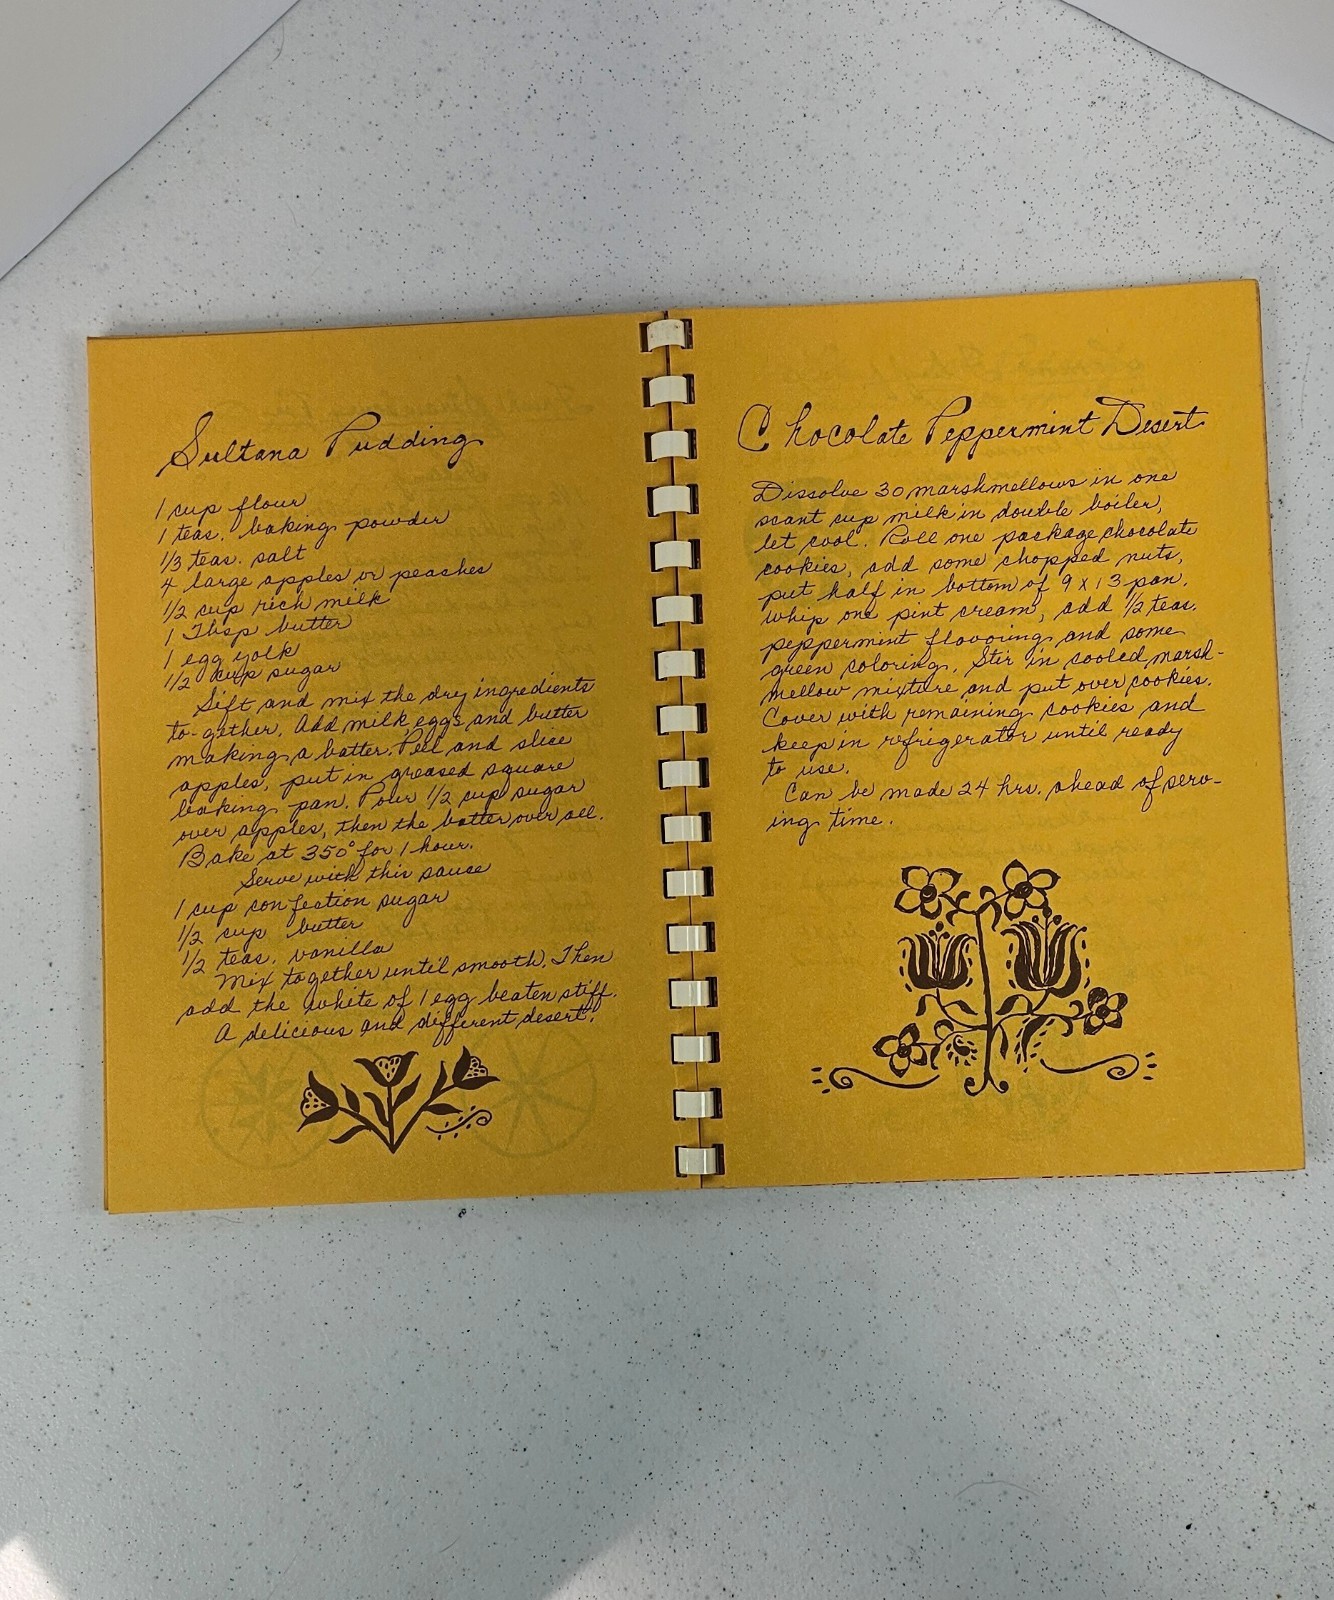 Sultana Pudding
1 cup flour
1 teas. baking powder
1/3 teas. salt
4 large apples or peaches
1/2 cup rich milk
1 Tbsp butter
1 egg yolk
1/2 cup sugar
Sift and mix the dry ingredients
to-gether. Add milk, eggs and butter
making a batter. Peel and slice
apples, put in greased square
baking pan. Pour 1/2 cup sugar
over apples, then the batter over all.
Bake at 350° for 1 hour.
Serve with this sauce
1 cup confection sugar
1/2 cup butter
1/2 teas. vanilla
Mix together until smooth. Then
add the white of 1 egg beaten stiff.
A delicious and different desert.
Chocolate Peppermint Desert
Dissolve 30 marshmellows in one
scant cup milk in double boiler,
let cool. Roll one package chocolate
cookies, add some chopped nuts,
put half in bottom of 9 x 13 pan.
Whip one pint cream, add 1/2 teas.
peppermint flavoring and some
green coloring. Stir in cooled marsh-
mellow mixture and put over cookies.
Cover with remaining cookies and
keep in refrigerator until ready
to use.
Can be made 24 hrs. ahead of serv-
ing time.